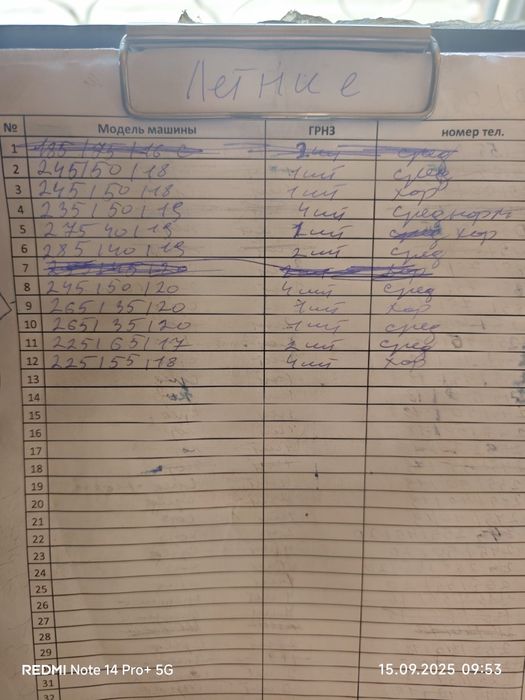 Летние
№ Модель машины ГРНЗ номер тел.
1 185/75/16 c 2 шт сред
2 245/50/18 1 шт сред
3 245/50/18 1 шт хор
4 235/50/19 4 шт среднорм
5 275 40/19 шт хор
6 285/40/19 2 шт сред
7
8 245/50/20 4 шт сред
9 265/35/20 1 шт хор
10 265/35/20 1 шт сред
11 225/65/17 2 шт сред
12 225/55/18 4 шт хор
13
14
15
16
17
18
19
20
21
22
23
24
25
26
27
28
29
31
32
REDMI Note 14 Pro+ 5G 15.09.2025 09:53